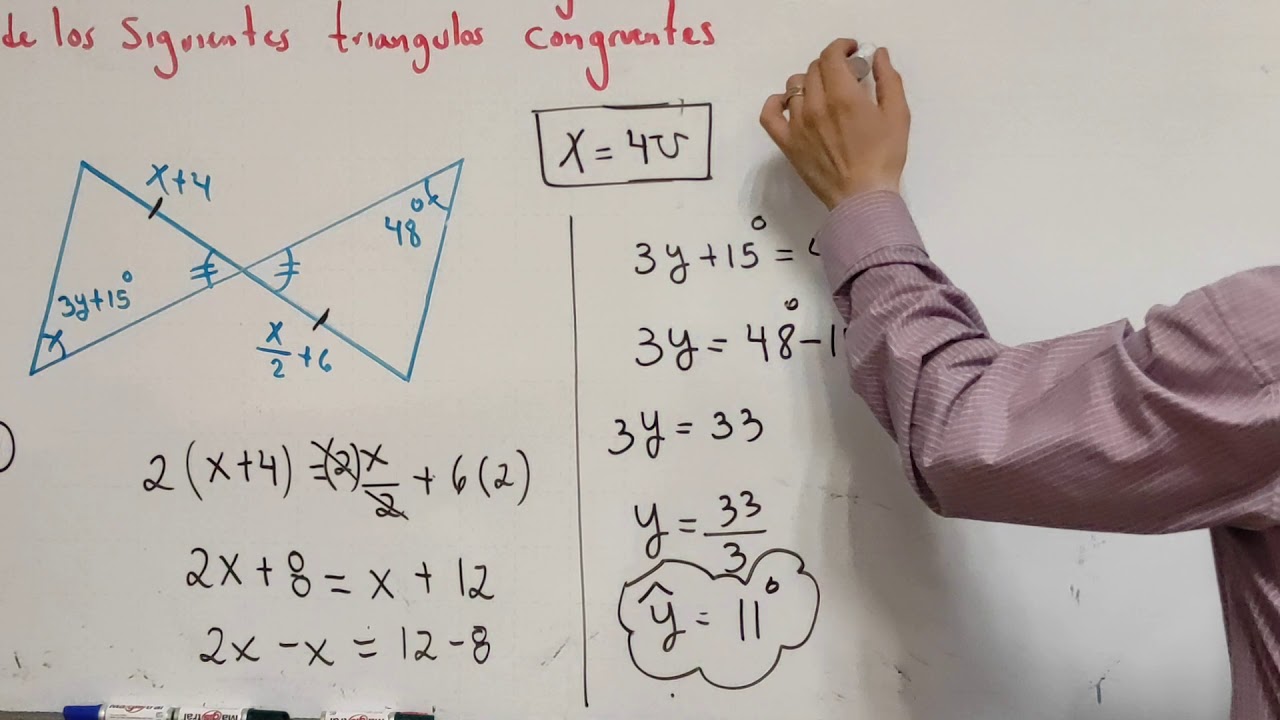 de los siguientes triangulos congruentes
x = 4υ
x+4
48°
3y+15°
x/2 + 6
2(x+4) = (2)x/2 + 6(2)
2x + 8 = x + 12
2x - x = 12 - 8
3y + 15° =
3y = 48° - 1
3y = 33
y = 33/3
ŷ = 11°